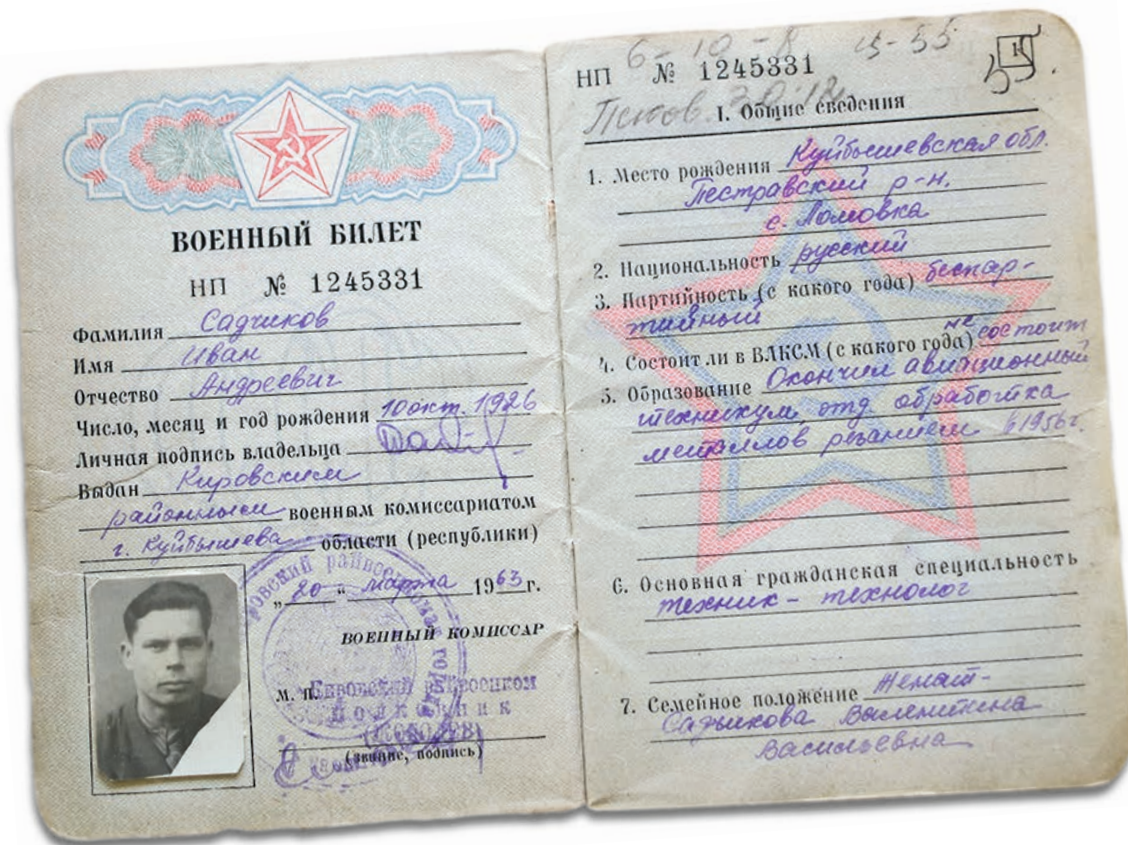 ВОЕННЫЙ БИЛЕТ
НП № 1245331
Фамилия Садчиков
Имя Иван
Отчество Андреевич
Число, месяц и год рождения 10 окт. 1926
Личная подпись владельца
Выдан Кировским
районным военным комиссариатом
г. Куйбышева области (республики)
„20“ марта 1963 г.
ВОЕННЫЙ КОМИССАР
М. П. Кировский райвоенком
Полковник
(звание, подпись)
6-10-8 15-55
НП № 1245331
I. Общие сведения
1. Место рождения Куйбышевская обл.
Пестравский р-н.
с. Ломовка
2. Национальность русский
3. Партийность (с какого года) беспар-
тийный
4. Состоит ли в ВЛКСМ (с какого года) не состоит
5. Образование Окончил авиационный
техникум отд. обработка
металлов резанием в 1956г.
6. Основная гражданская специальность
техник - технолог
7. Семейное положение Женат -
Садчикова Валентина
Васильевна